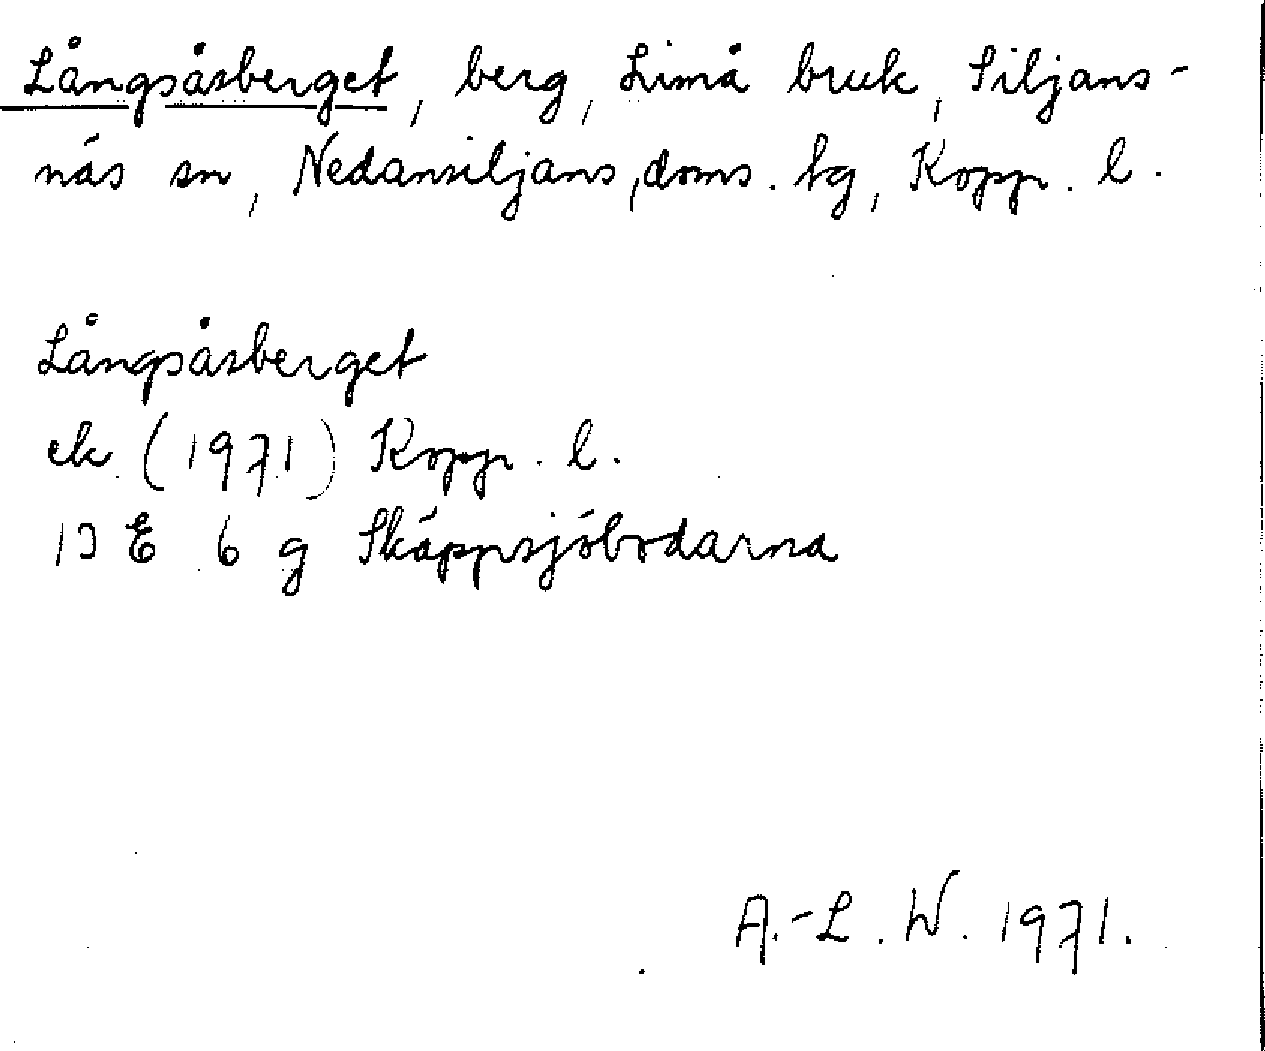 Långsåsberget, berg, Limå bruk, Siljans-
näs sn, Nedansiljans, doms. tg, Kopp. l.
Långsåsberget
ek (1971) Kopp. l.
13 E 6 g Skäppsjöbodarna
A.-L. W. 1971.